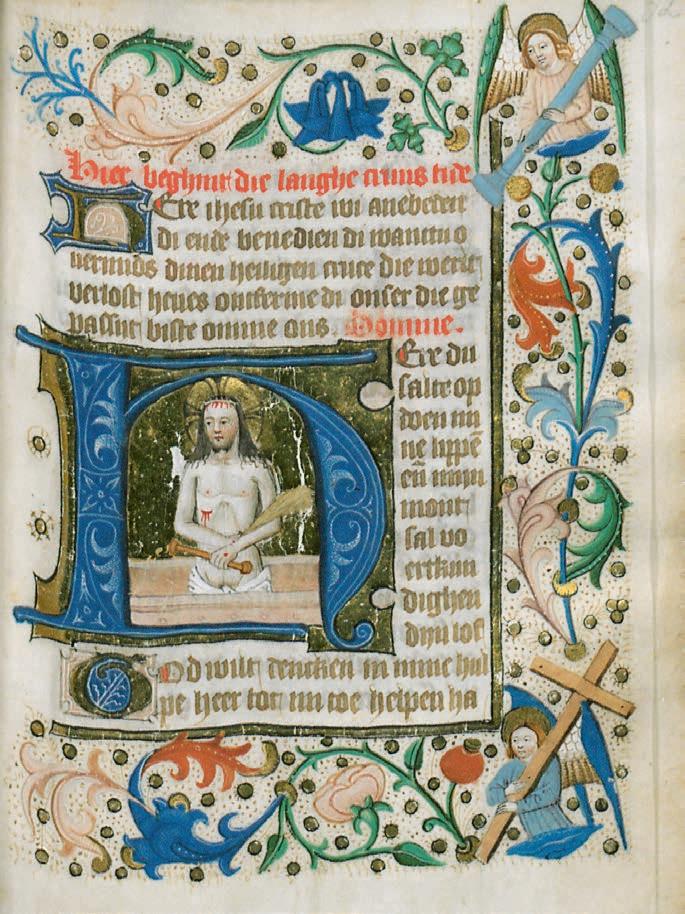 Hier beghint die langhe cruus tide
Ere ihesu criste wi anebeden
di ende benedien di want tu o
uermids dinen heiligen cruce die werlt
verlost heues ontferme di onser die ge
passijt biste omme ons. Domine.
HEre du
salte op
doen mi
ne lippē
eñ mijn
mont
sal vo
ertkun
dighen
dijn lof
God wilt dencken in mine hul
pe heer tot mi toe helpen ha